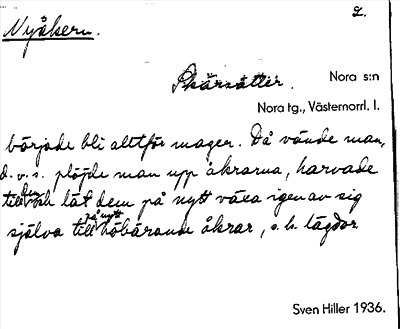 2.
Nyåkern.
Skärsätter. Nora s:n
Nora tg., Västernorrl. l.
började bli alltför mager. Då vände man,
d. v. s. plöjde man upp åkrarna, harvade
till den och lät dem på nytt växa igen av sig
själva till på nytt höbärande åkrar, s. k. tägdor.
Sven Hiller 1936.